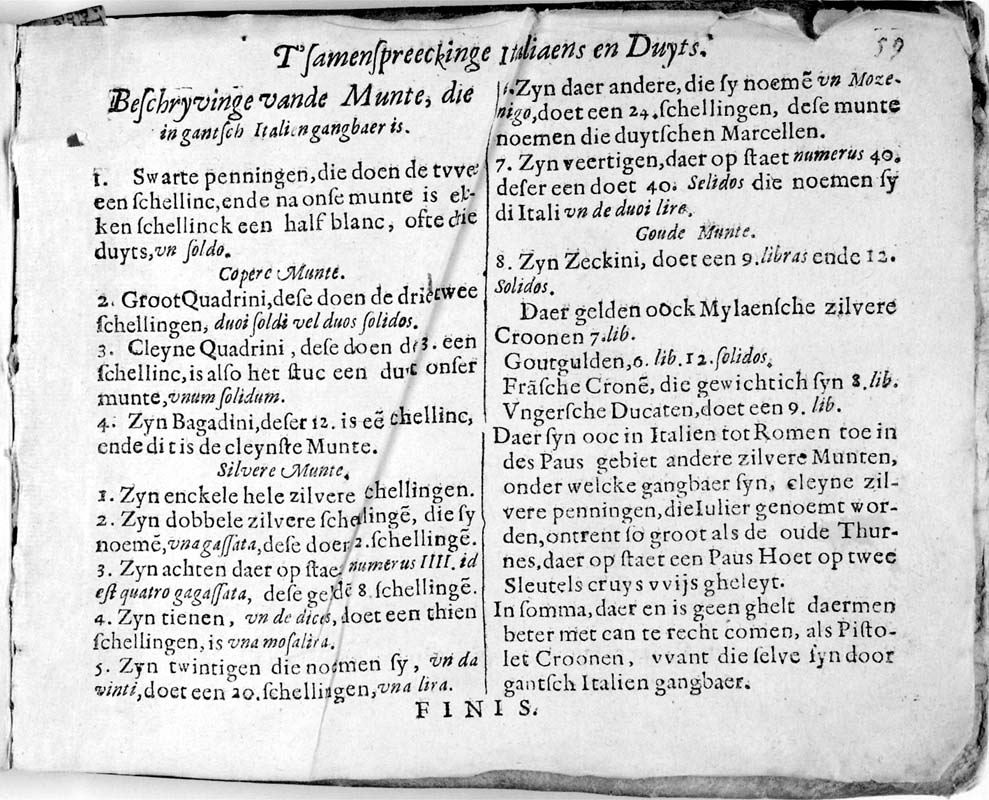 T'ſamenſpreeckinge Italiaens en Duyts.
59
Beſchryvinge vande Munte, die
in gantſch Italien gangbaer is.
1. Swarte penningen, die doen de tvve
een ſchellinc, ende na onſe munte is el-
ken ſchellinck een half blanc, ofte die
duyts, vn ſoldo.
Copere Munte.
2. Groot Quadrini, deſe doen de drie twee
ſchellingen, duoi ſoldi vel duos ſolidos.
3. Cleyne Quadrini, deſe doen de 3. een
ſchellinc, is alſo het ſtuc een duit onſer
munte, vnum ſolidum.
4. Zyn Bagadini, deſer 12. is eē chellinc,
ende dit is de cleynſte Munte.
Silvere Munte.
1. Zyn enckele hele zilvere chellingen.
2. Zyn dobbele zilvere ſchelingē, die ſy
noemē, vna gaſſata, deſe doen 2. ſchellingē.
3. Zyn achten daer op ſtaet numerus IIII. id
eſt quatro gagaſſata, deſe geldē 8. ſchellingē.
4. Zyn tienen, vn de dices, doet een thien
ſchellingen, is vna moſalira.
5. Zyn twintigen die noemen ſy, vn da
vinti, doet een 20. ſchellingen, vna lira.
6. Zyn daer andere, die ſy noemē vn Moze-
nigo, doet een 24. ſchellingen, deſe munte
noemen die duytſchen Marcellen.
7. Zyn veertigen, daer op ſtaet numerus 40.
deſer een doet 40. Solidos die noemen ſy
di Itali vn de duoi lire.
Goude Munte.
8. Zyn Zeckini, doet een 9. libras ende 12.
Solidos.
Daer gelden oock Mylaenſche zilvere
Croonen 7. lib.
Goutgulden, 6. lib. 12. ſolidos.
Frāſche Cronē, die gewichtich ſyn 8. lib.
Vngerſche Ducaten, doet een 9. lib.
Daer ſyn ooc in Italien tot Romen toe in
des Paus gebiet andere zilvere Munten,
onder welcke gangbaer ſyn, cleyne zil-
vere penningen, die Iulier genoemt wor-
den, ontrent ſo groot als de oude Thur-
nes, daer op ſtaet een Paus Hoet op twee
Sleutels cruys vvijs gheleyt.
In ſomma, daer en is geen ghelt daermen
beter met can te recht comen, als Piſto-
let Croonen, vvant die ſelve ſyn door
gantſch Italien gangbaer.
FINIS.